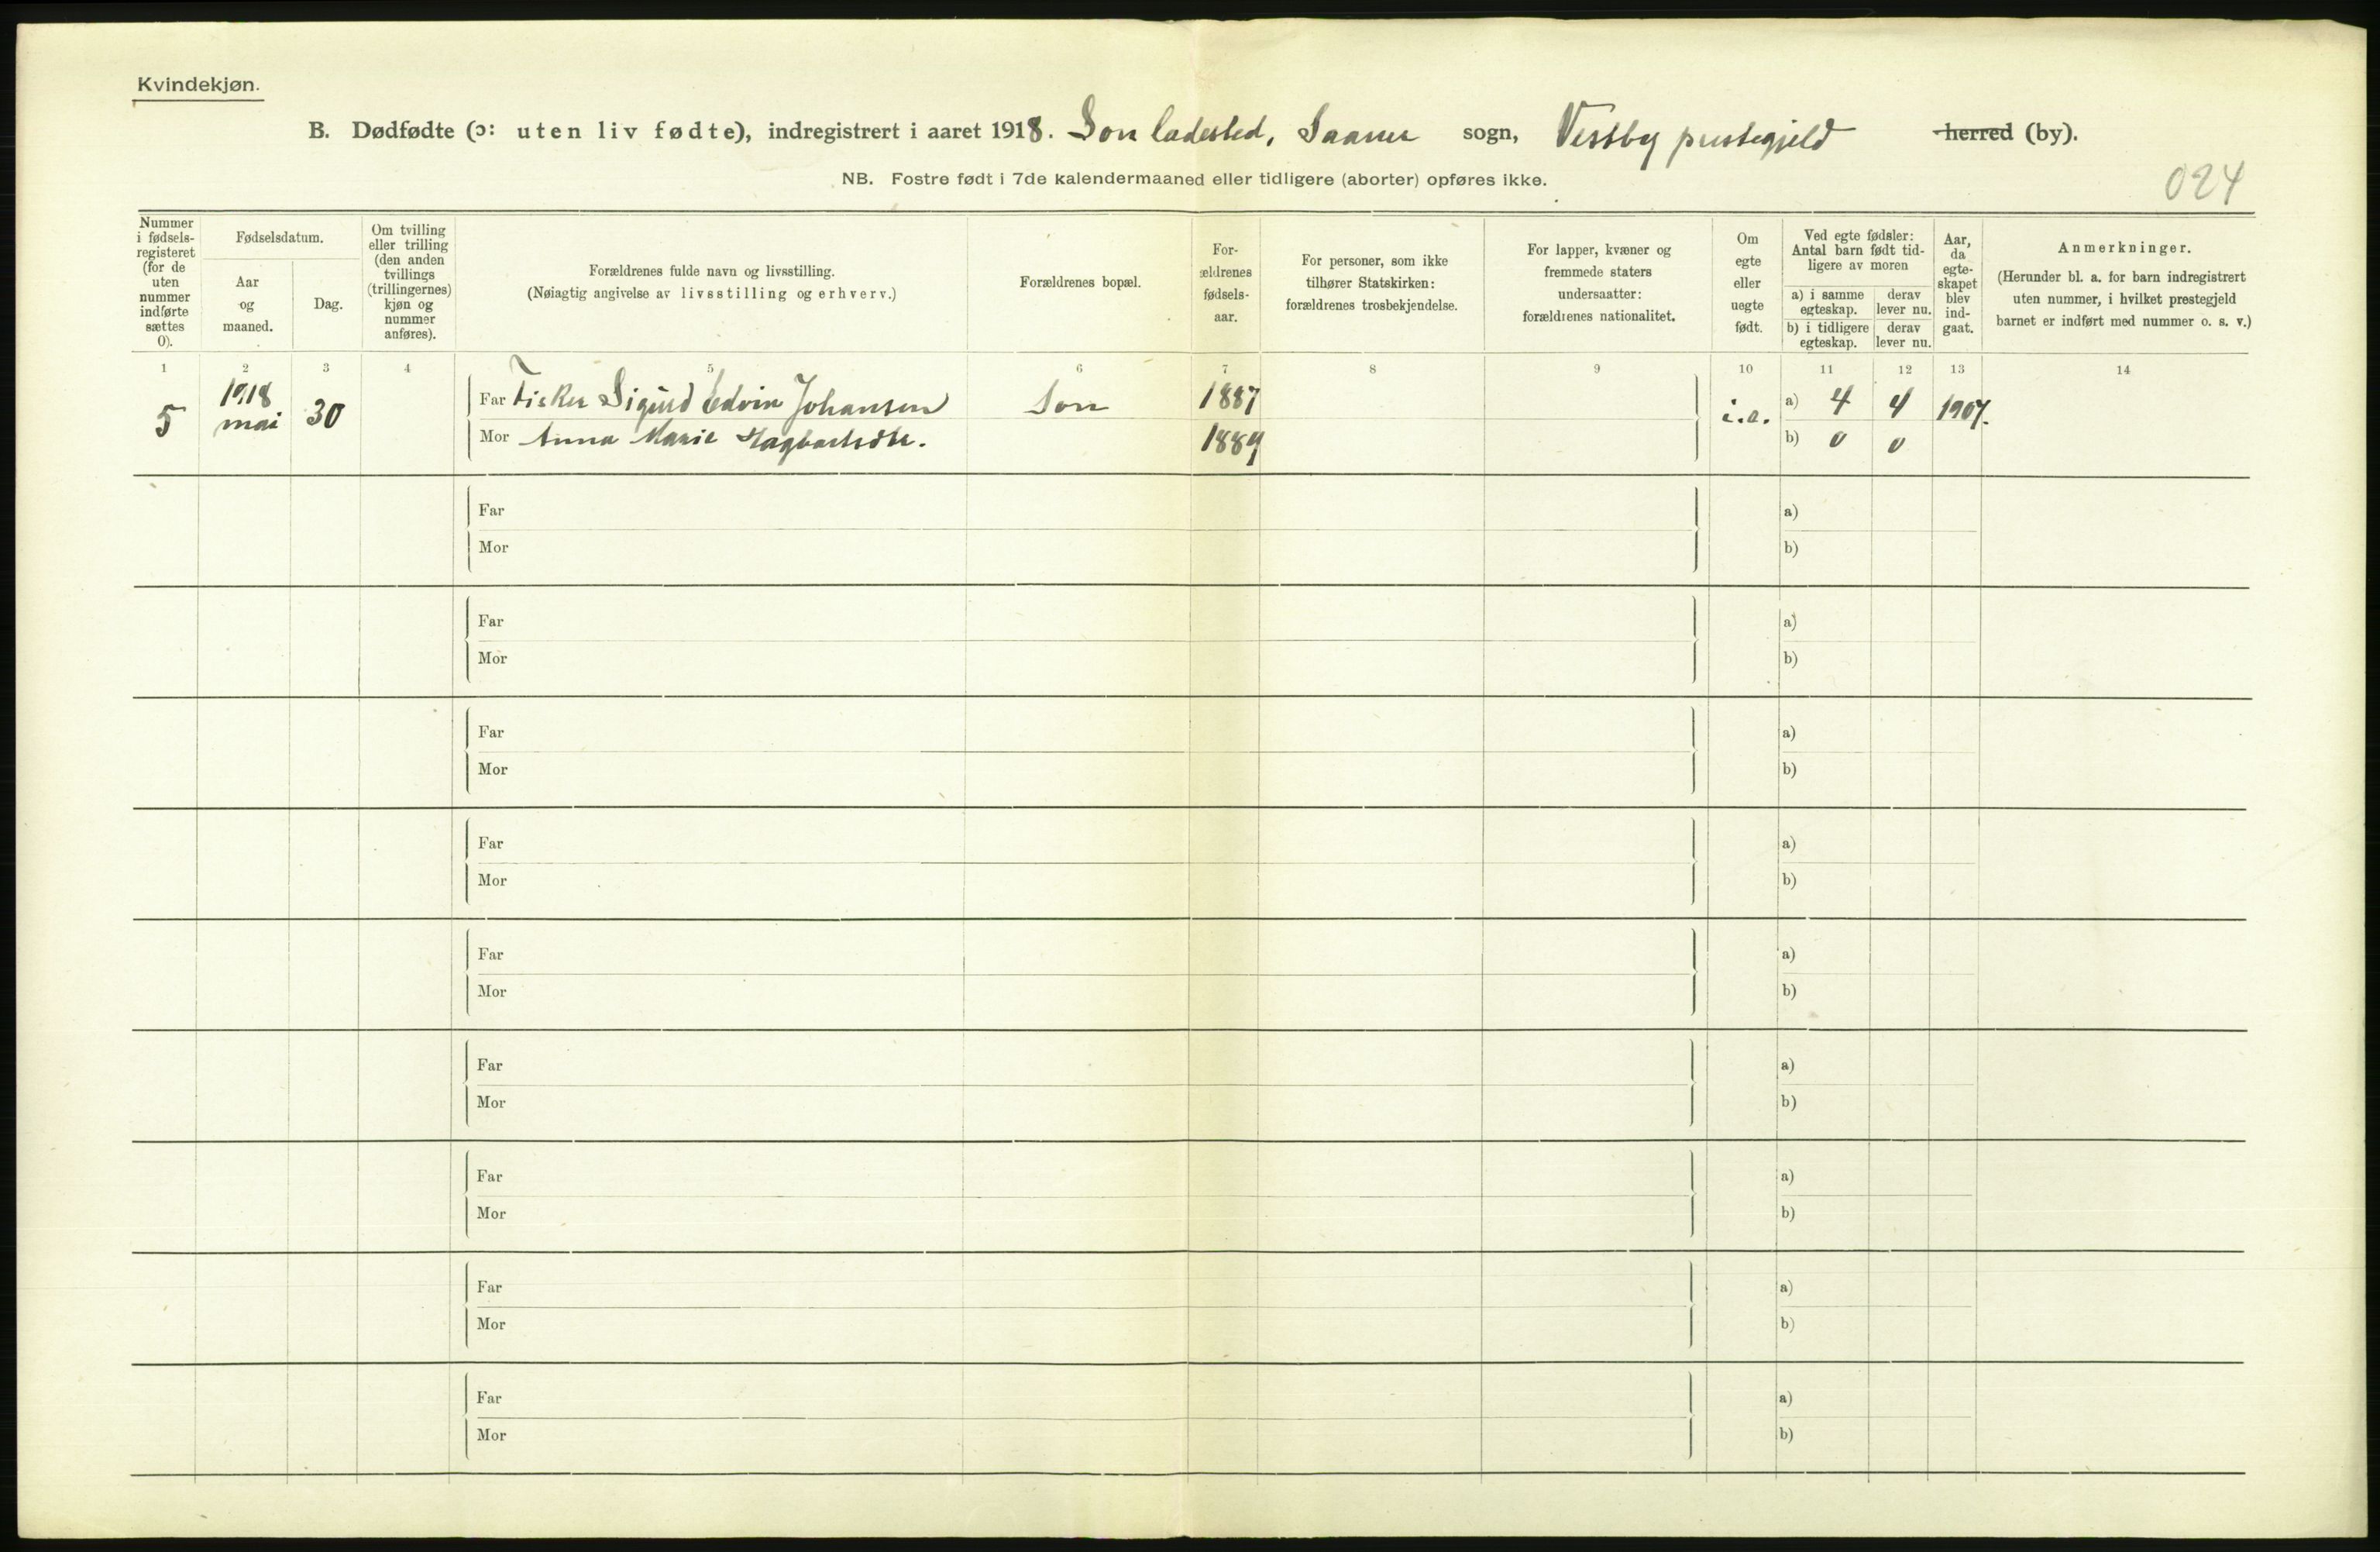 Kvindekjøn.
B. Dødfødte (ɔ: uten liv fødte), indregistrert i aaret 1918. Son ladested, Saaner sogn, Vestby prestegjeld herred (by).
NB. Fostre født i 7de kalendermaaned eller tidligere (aborter) opføres ikke.
024
Nummer i fødsels-registeret (for de uten nummer indførte sættes 0).
Fødselsdatum.
Aar og maaned.
Dag.
Om tvilling eller trilling (den anden tvillings (trillingernes) kjøn og nummer anføres).
Forældrenes fulde navn og livsstilling.
(Nøiagtig angivelse av livsstilling og erhverv.)
Forældrenes bopæl.
For-ældrenes fødsels-aar.
For personer, som ikke tilhører Statskirken: forældrenes trosbekjendelse.
For lapper, kvæner og fremmede staters undersaatter: forældrenes nationalitet.
Om egte eller uegte født.
Ved egte fødsler: Antal barn født tid-ligere av moren
a) i samme egteskap.
derav lever nu.
b) i tidligere egteskap.
derav lever nu.
Aar, da egte-skapet blev ind-gaat.
Anmerkninger.
(Herunder bl. a. for barn indregistrert uten nummer, i hvilket prestegjeld barnet er indført med nummer o. s. v.)
1 2 3 4 5 6 7 8 9 10 11 12 13 14
5 1918 mai 30
Far Fisker Sigurd Edvin Johansen Son 1887 i.e. a) 4 4 1907.
Mor Anna Marie Hagbartsdtr. 1889 b) 0 0
Far a)
Mor b)
Far a)
Mor b)
Far a)
Mor b)
Far a)
Mor b)
Far a)
Mor b)
Far a)
Mor b)
Far a)
Mor b)
Far a)
Mor b)
Far a)
Mor b)